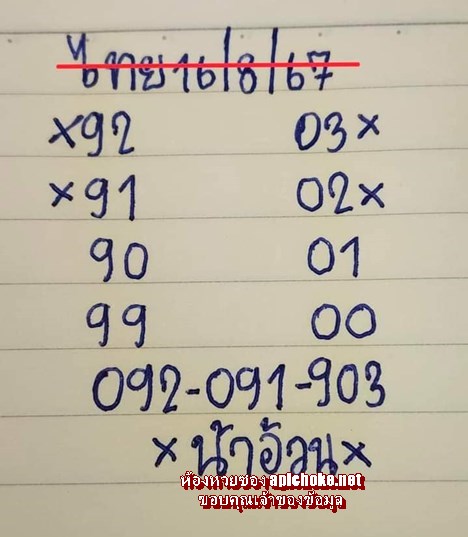 ไทย 16/8/67
×92 03×
×91 02×
90 01
99 00
092-091-903
×น้าอ้วน×
ห้องหวยซอง apichoke.net
ขอบคุณเจ้าของข้อมูล